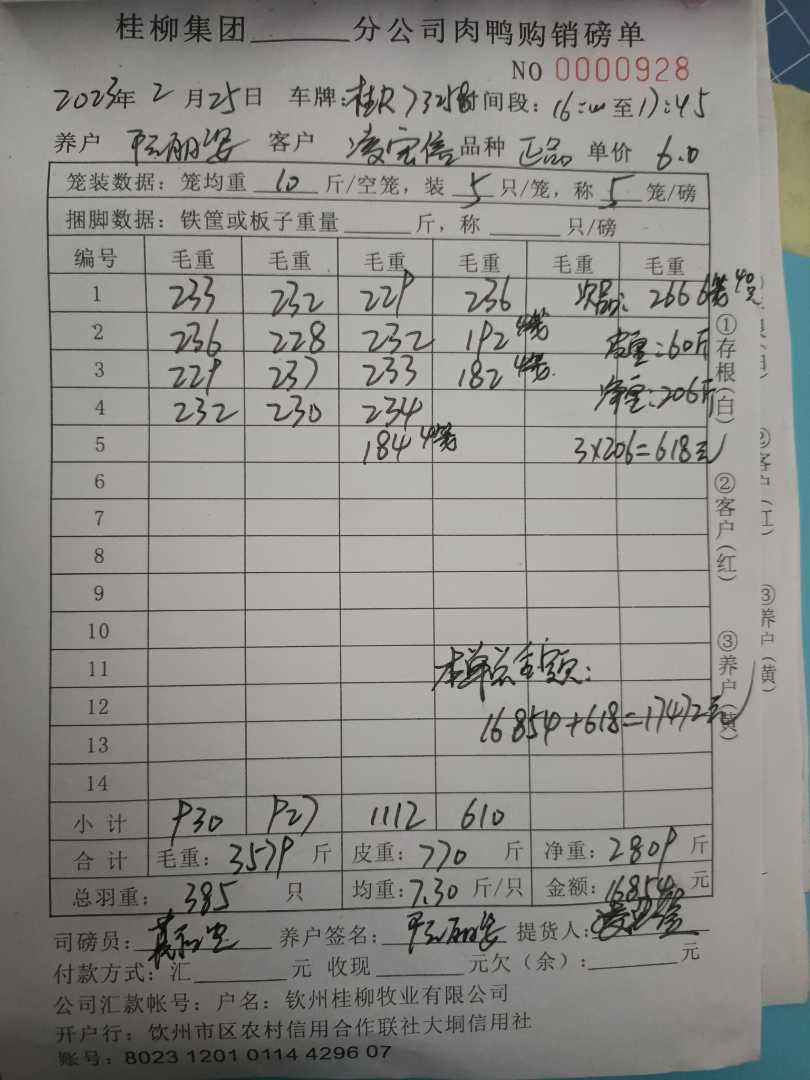 桂柳集团______分公司肉鸭购销磅单
NO 0000928
2023年 2 月 25日 车牌：桂R 7325 时间段：16: 至 17:45
养户 丽姿 客户 凌宝信 品种 正品 单价 6.0
笼装数据：笼均重 10 斤/空笼，装 5 只/笼，称 5 笼/磅
捆脚数据：铁筐或板子重量______斤，称______只/磅
编号 毛重 毛重 毛重 毛重 毛重 毛重
1 233 232 229 236 次品：266 6笼 40只
2 236 228 232 192 4笼 皮重：60斤
3 229 237 233 182 4笼 净重：206斤
4 232 230 234
5 184 4笼 3×206=618元
6
7
8
9
10
11 本单总金额：
12 16854+618=17472元
13
14
小计 930 927 1112 610
合计 毛重：3579 斤 皮重：770 斤 净重：2809 斤
总羽重： 385 只 均重：7.30 斤/只 金额：16854 元
司磅员： 养户签名：丽姿 提货人：
付款方式：汇______元 收现______元欠（余）：______元
公司汇款帐号：户名：钦州桂柳牧业有限公司
开户行：钦州市区农村信用合作联社大垌信用社
账号：8023 1201 0114 4296 07
①存根（白）
②客户（红）
③养户（黄）
②客户（红）
③养户（黄）